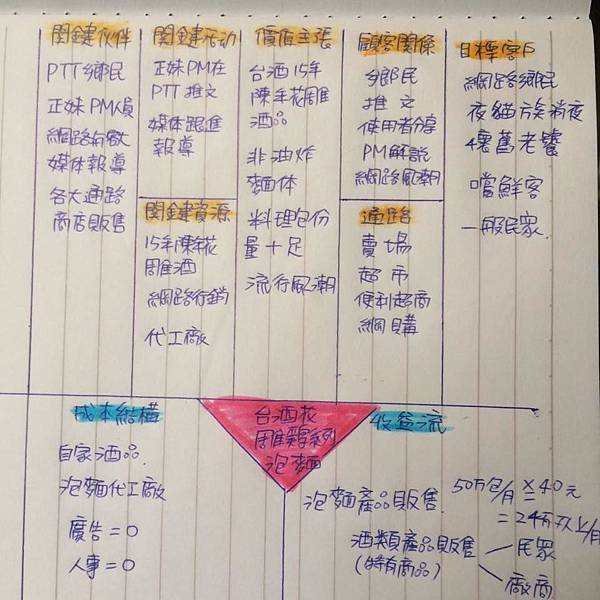 關鍵伙伴
PTT鄉民
正妹PM人員
網路有敵
媒体報導
各大通路
商店販售
關鍵活动
正妹PM在
PTT推文
媒體跟進
報導
關鍵資源
15年陳年花
雕酒
網路行銷
代工廠
價值主張
台酒15年
陳年花雕
酒品
非油炸
麵体
料理包份
量十足
流行風潮
顧客関係
鄉民
推文
使用者分享
PM解說
網路風潮
通路
賣場
超市
便利超商
網購
目標客戶
網路鄉民
夜貓族消夜
懷舊老饕
嚐鮮客
一般民家
成本結構
自家酒品
泡麵代工廠
廣告=0
人事=0
台酒花
雕雞系列
泡麵
收益流
泡麵產品販售 50万包/月 × 40元
=2千万以上/月
酒類產品販售
(特有商品)
民眾
廠商